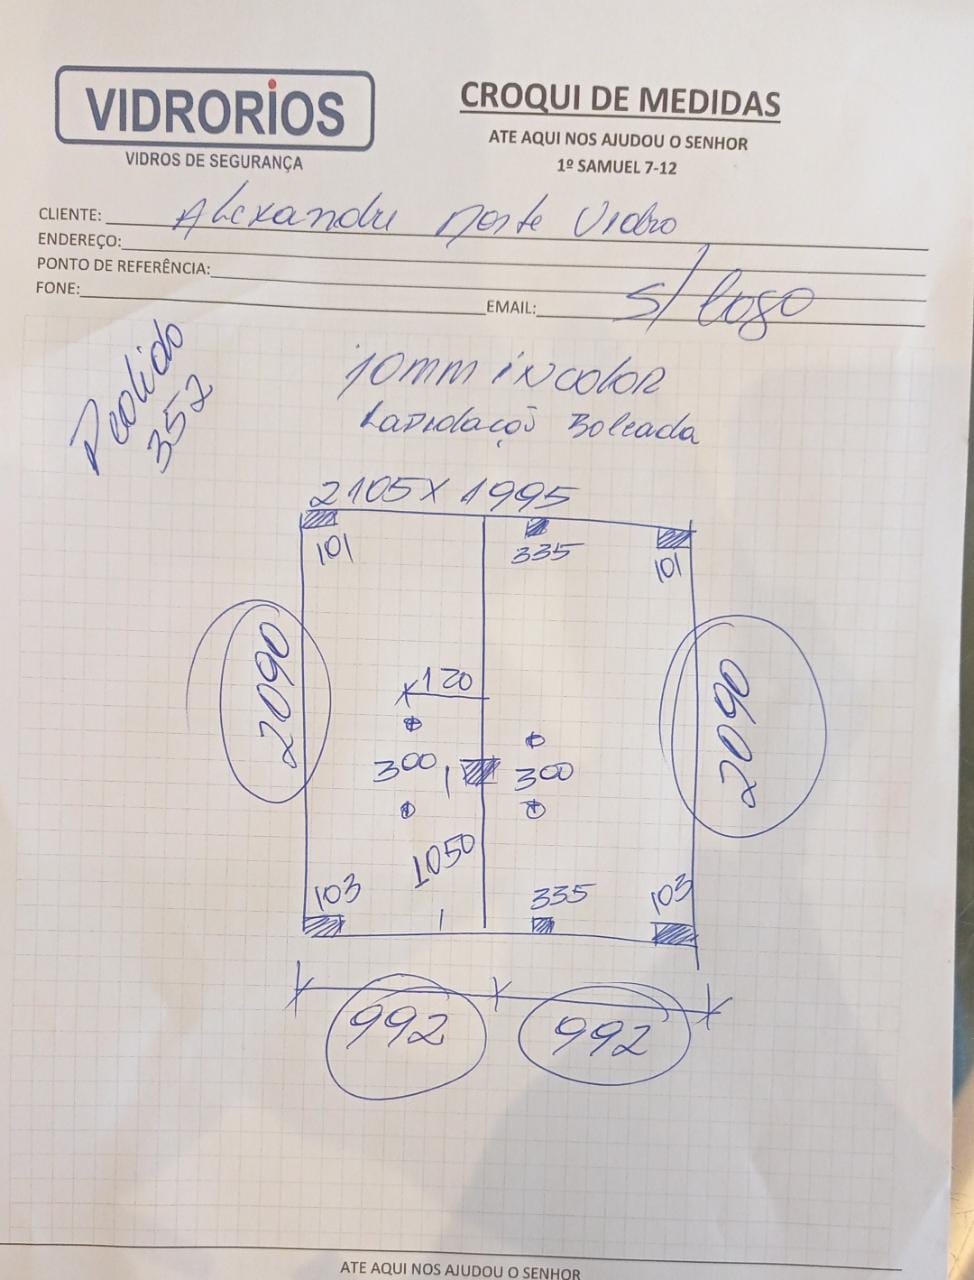 VIDRORIOS
VIDROS DE SEGURANÇA
CROQUI DE MEDIDAS
ATE AQUI NOS AJUDOU O SENHOR
1º SAMUEL 7-12
CLIENTE: Alexandre Norte Vidro
ENDEREÇO:
PONTO DE REFERÊNCIA:
FONE:
EMAIL: S/ logo
Pedido
352
10mm incolor
Lapidação Boleada
2105 X 1995
101
335
101
2090
2090
120
300
300
1050
103
335
103
992
992
ATE AQUI NOS AJUDOU O SENHOR